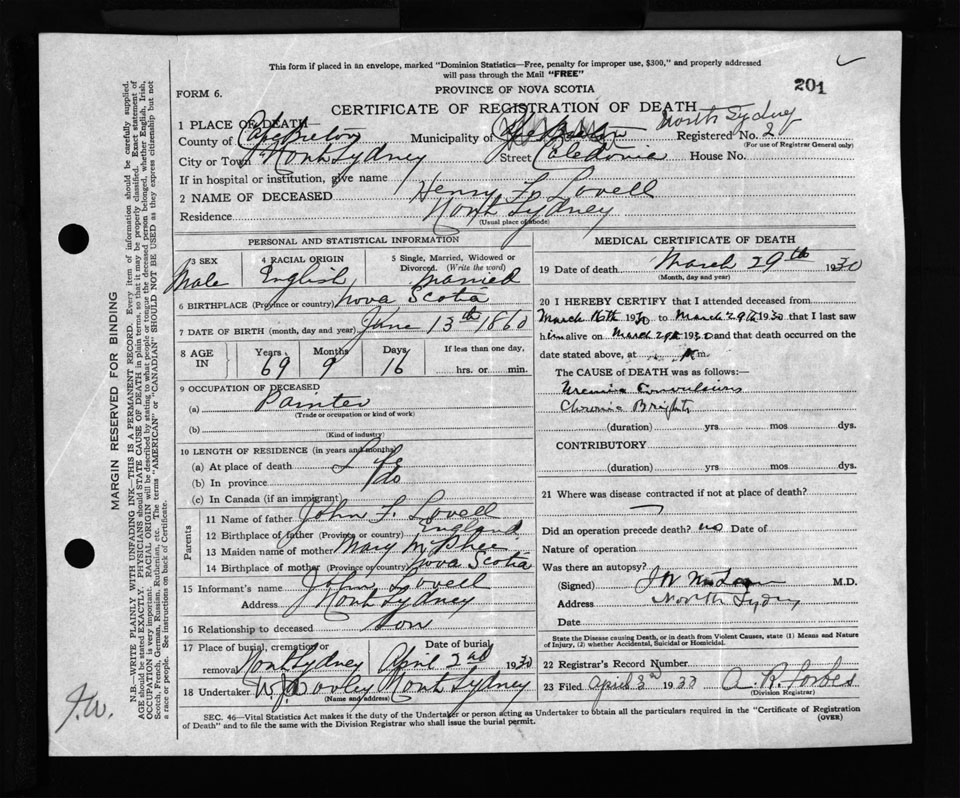 This form if placed in an envelope, marked "Dominion Statistics—Free, penalty for improper use, $300," and properly addressed
will pass through the Mail "FREE"
201
FORM 6.
PROVINCE OF NOVA SCOTIA
CERTIFICATE OF REGISTRATION OF DEATH
North Sydney
1 PLACE OF DEATH—
County of Cape Breton Municipality of Registered No. 2
(For use of Registrar General only)
City or Town North Sydney Street Caledonia House No.
If in hospital or institution, give name
2 NAME OF DECEASED Henry Lovell
Residence North Sydney
(Usual place of abode)
PERSONAL AND STATISTICAL INFORMATION
3 SEX 4 RACIAL ORIGIN 5 Single, Married, Widowed or Divorced. (Write the word)
Male English Married
6 BIRTHPLACE (Province or country) Nova Scotia
7 DATE OF BIRTH (month, day and year) June 13th 1860
8 AGE IN Years Months Days If less than one day,
69 9 16 hrs. or min.
9 OCCUPATION OF DECEASED
(a) Painter
(Trade or occupation or kind of work)
(b)
(Kind of industry)
10 LENGTH OF RESIDENCE (in years and months)
(a) At place of death Life
(b) In province do
(c) In Canada (if an immigrant)
Parents
11 Name of father John F. Lovell
12 Birthplace of father (Province or country) England
13 Maiden name of mother Mary McPhee
14 Birthplace of mother (Province or country) Nova Scotia
15 Informant's name John Lovell
Address North Sydney
16 Relationship to deceased son
17 Place of burial, cremation or removal North Sydney Date of burial April 2nd 1930
18 Undertaker W. J. Dooley North Sydney
(Name and address)
MEDICAL CERTIFICATE OF DEATH
19 Date of death March 29th 1930
(Month, day and year)
20 I HEREBY CERTIFY that I attended deceased from
March 16th 1930 to March 29th 1930 that I last saw
him alive on March 29th 1930 and that death occurred on the
date stated above, at m.
The CAUSE OF DEATH was as follows:—
Uremia Convulsions
Chronic Brights
(duration) yrs mos dys.
CONTRIBUTORY
(duration) yrs mos dys.
21 Where was disease contracted if not at place of death?
Did an operation precede death? no Date of
Nature of operation
Was there an autopsy?
(Signed) M.D.
Address North Sydney
Date
State the Disease causing Death, or in death from Violent Causes, state (1) Means and Nature
of Injury, (2) whether Accidental, Suicidal or Homicidal.
22 Registrar's Record Number
23 Filed April 3rd 1930 A. R. Forbes
(Division Registrar)
SEC. 46—Vital Statistics Act makes it the duty of the Undertaker or person acting as Undertaker to obtain all the particulars required in the "Certificate of Registration
of Death" and to file the same with the Division Registrar who shall issue the burial permit.
(OVER)
MARGIN RESERVED FOR BINDING
N.B.—WRITE PLAINLY WITH UNFADING INK—THIS IS A PERMANENT RECORD. Every item of information should be carefully supplied.
AGE should be stated EXACTLY. PHYSICIANS should STATE CAUSE OF DEATH in plain terms, so that it may be properly classified. Exact statement of
OCCUPATION is very important. RACIAL ORIGIN will be described by stating to what people or tongue the deceased person belonged, whether English, Irish,
Scotch, French, German, Russian, Ruthenian, etc. The terms "AMERICAN" or "CANADIAN" SHOULD NOT BE USED as they express citizenship but not
a race or people. See instructions on back of Certificate.
J.W.